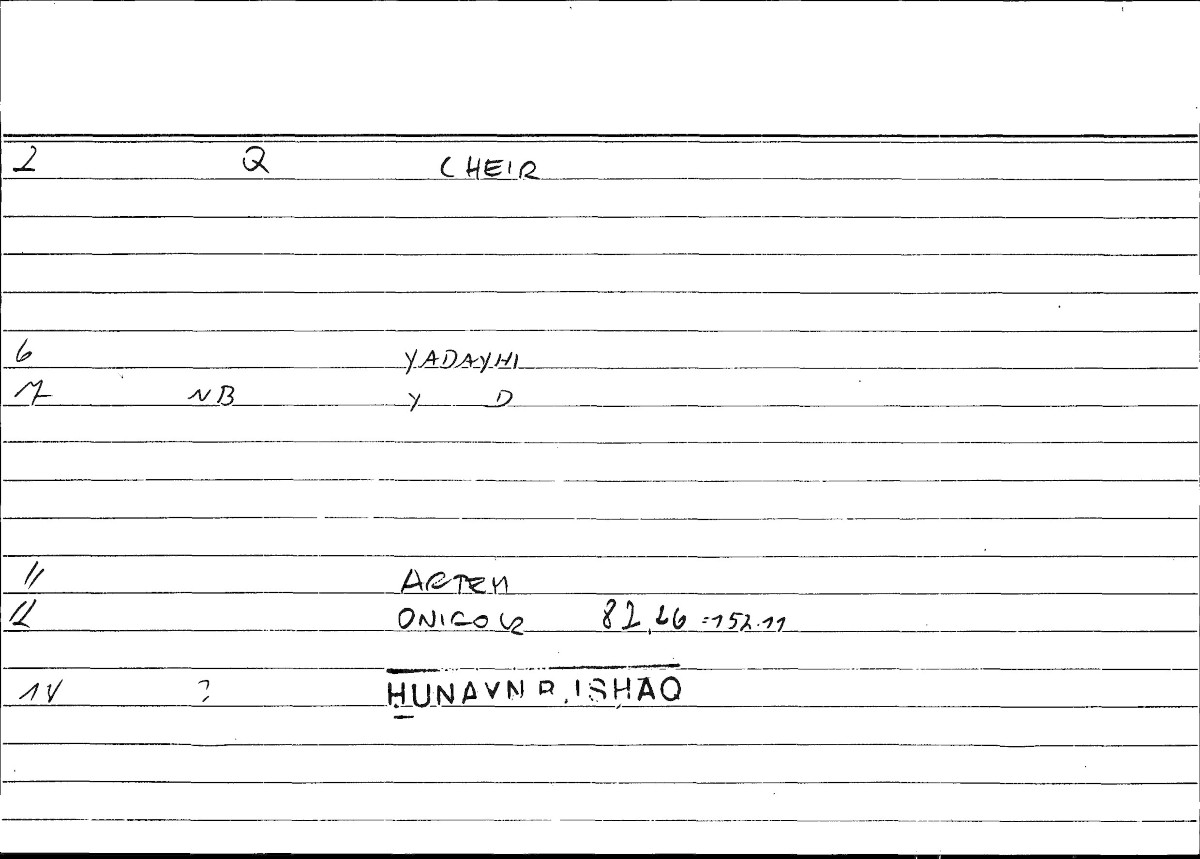 2 Q CHEIR
6 YADAYHI
7 NB Y D
11 ARTEM
12 82,26 =152.11
14 ? HUNAYN B. ISHAQ